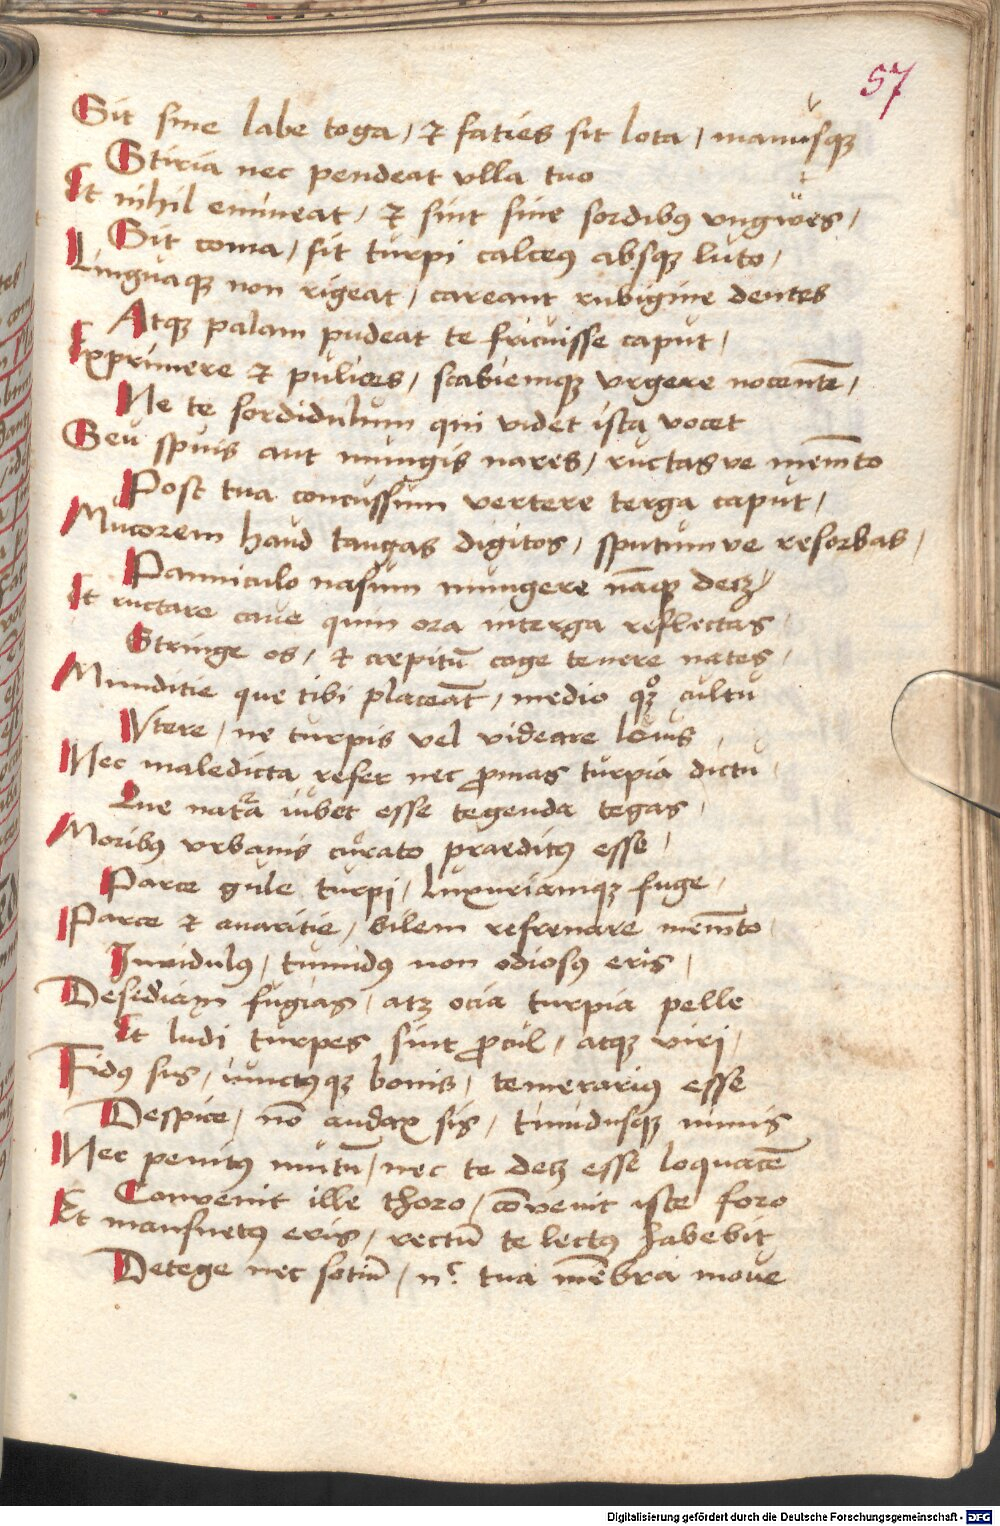 57
Sit sine labe toga, et faties sit lota, manusque
Stiria nec pendeat ulla tuo
Et nihil emineat, et sint sine sordibꝰ ungues,
Sit coma, sit turpi calceꝰ absqꝫ luto,
Linguaqꝫ non rigeat, careant rubigine dentes
Atqꝫ palam pudeat te fricuisse caput,
Exprimere et pulices, scabiemqꝫ urgere nocentē,
Ne te sordidulum qui videt ista vocet
Seu spuis aut mungis nares, ructas ve memēto
Post tua concussum vertere terga caput,
Mucorem haud tangas digitos, sputum ve resorbas,
Panniculo nasum mungere nāqꝫ decꝫ
Et ructare cave quin ora interga reflectas,
Stringe os, et crepitū coge tenere nates,
Munditie que tibi placeāt, medio qꝫ cultu
Utere, ne turpis vel videare levis,
Nec maledicta refer nec ꝓmas turpia dictu,
Que natᵃra iubet esse tegenda tegas,
Moribꝰ urbanis curato praeditꝰ esse,
Parce gule turpi, luxuriamqꝫ fuge,
Parce et avaritie, bilem refrenare memēto,
Invidulꝰ, tumidꝰ non odiosꝰ eris,
Desediam fugias, atꝫ ocia turpia pelle
Et ludi turpes sint ꝓcul, atqꝫ viri,
Fidꝰ sis, iunctusqꝫ bonis, temerariꝰ esse
Despice, nō audax sis, timidusqꝫ nimis
Nec penitꝰ mutū, nec te decꝫ esse loquacē
Convenit ille thoro, cōvenit iste foro
Et mansuetꝰ eris, rectū te lectꝰ habebit
Detege nec sotiū, nᶜ tua mēbra move
Digitalisierung gefördert durch die Deutsche Forschungsgemeinschaft - DFG